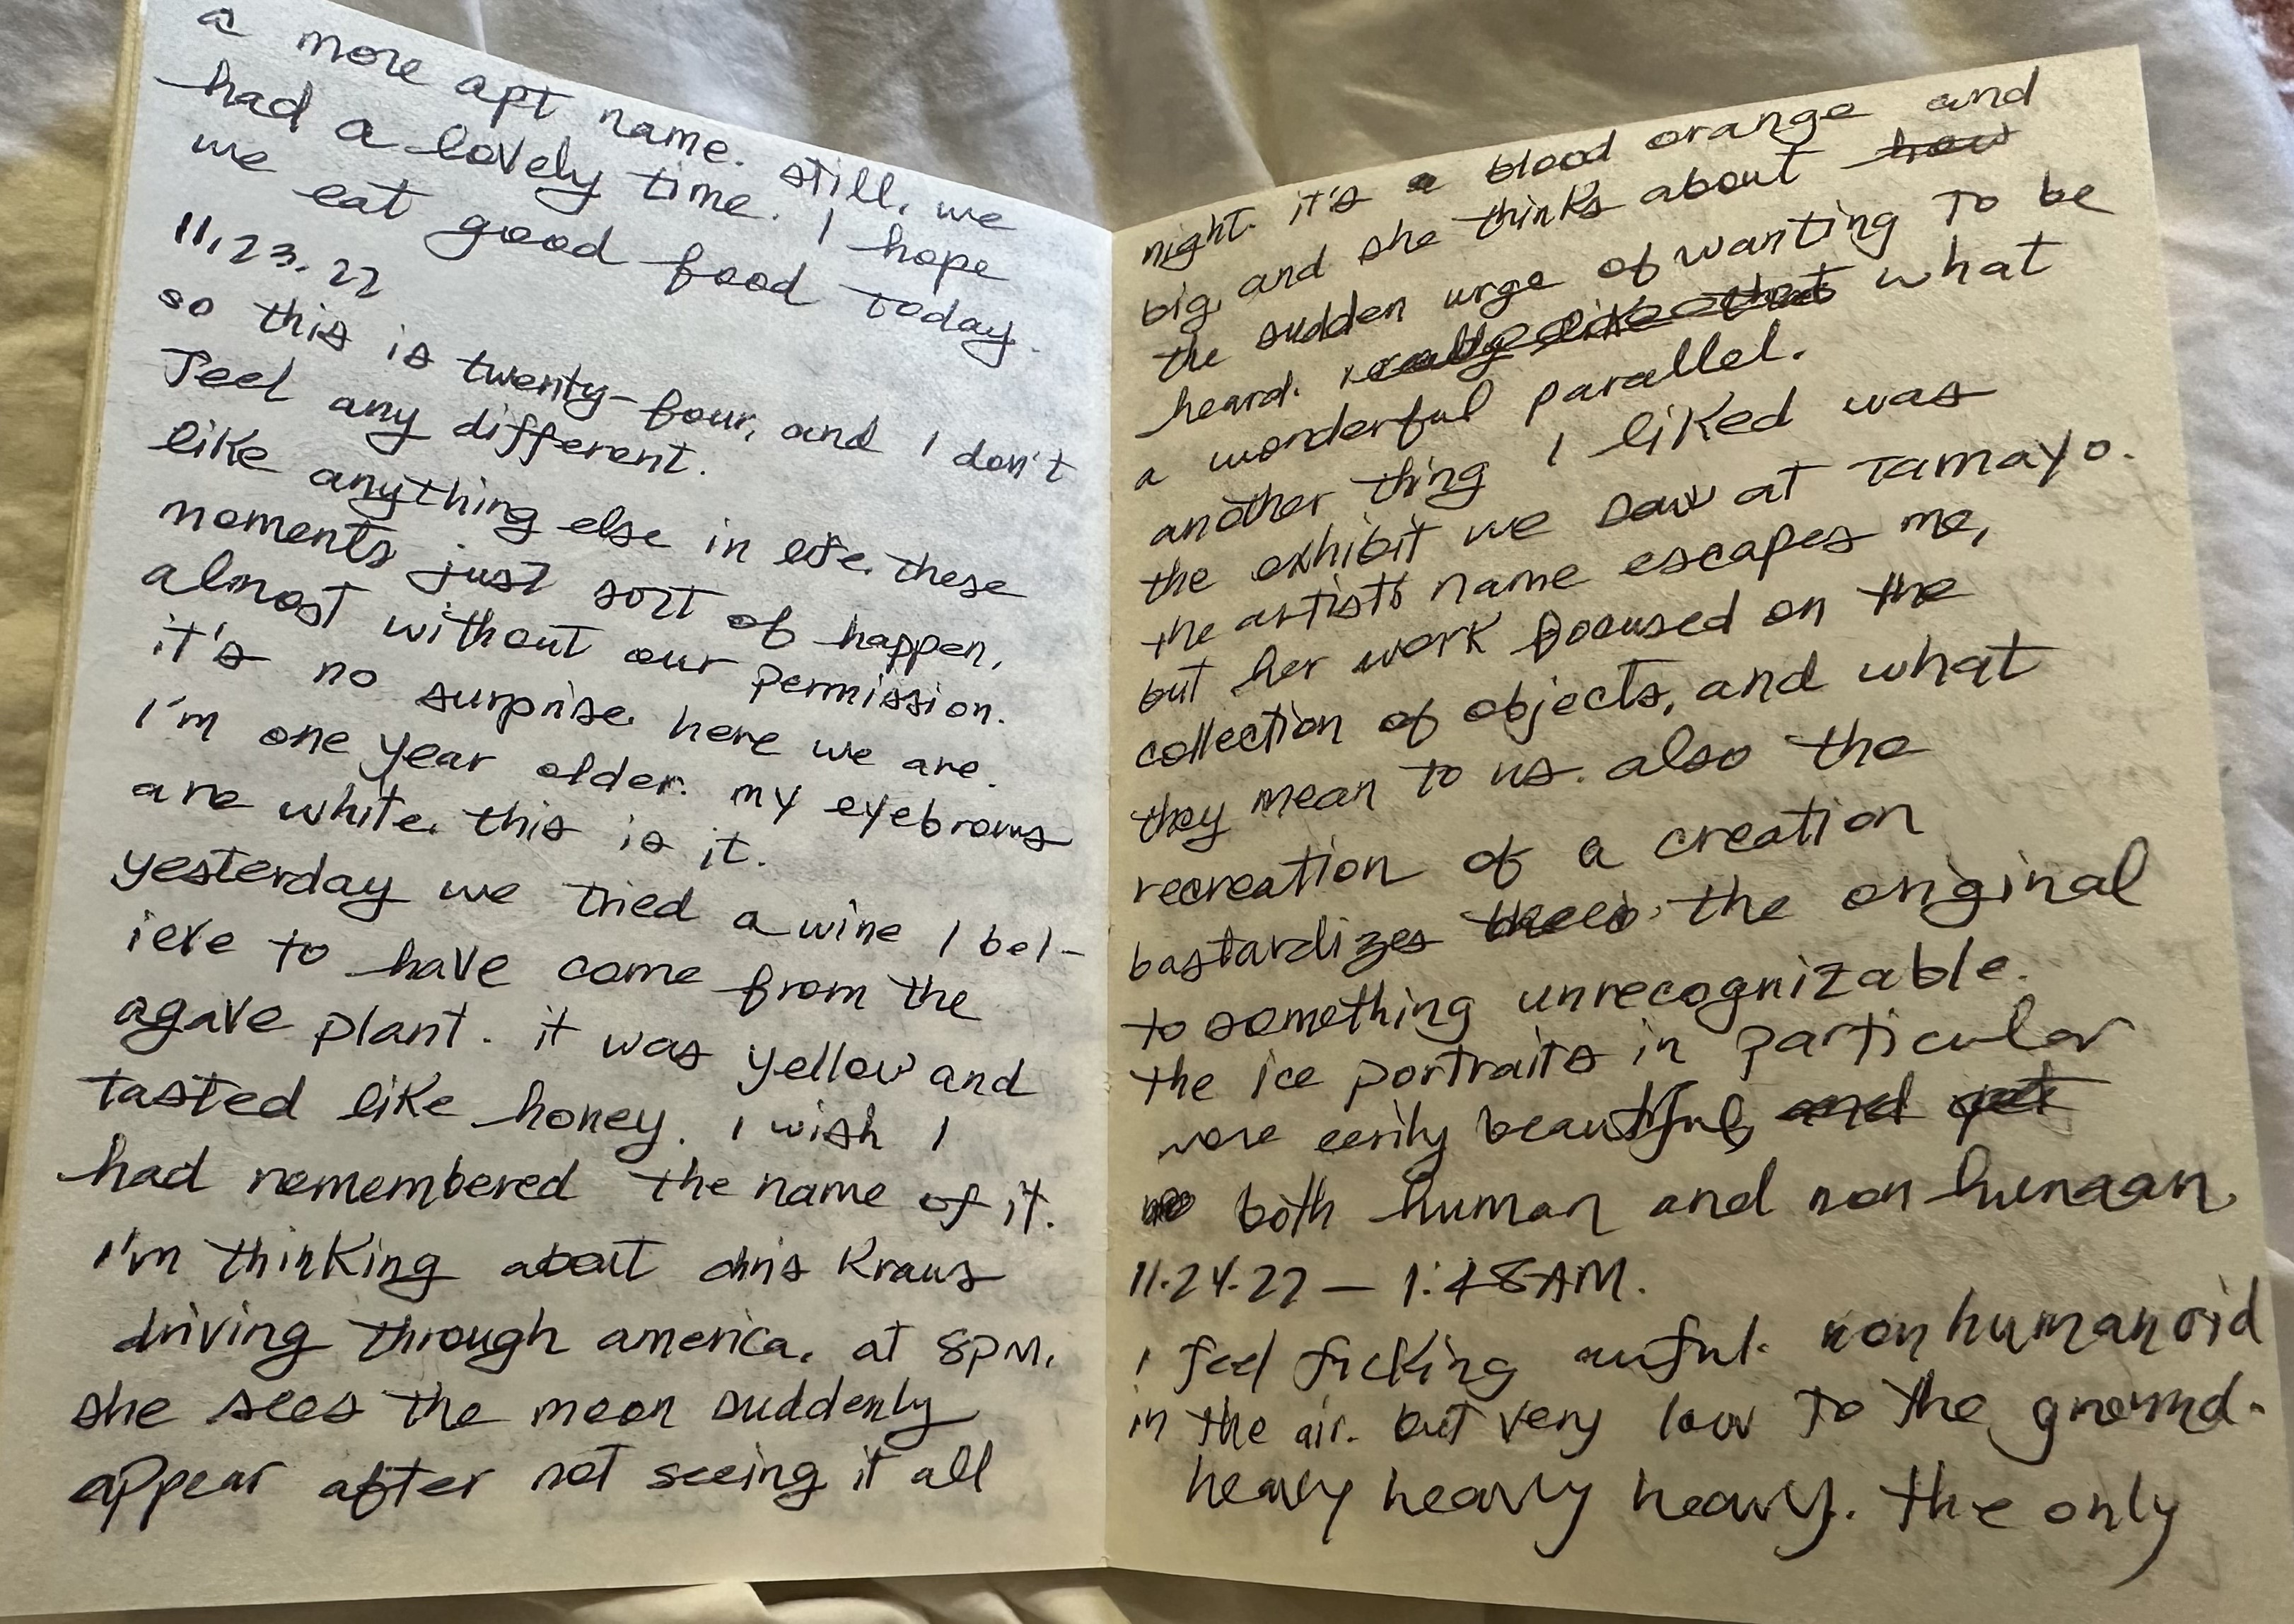 a more apt name. still, we
had a lovely time. I hope
we eat good food today.
11.23.22
so this is twenty-four, and I don't
feel any different.
like anything else in life, these
moments just sort of happen,
almost without our permission.
it's no surprise. here we are.
I'm one year older. my eyebrows
are white. this is it.
yesterday we tried a wine I bel-
ieve to have come from the
agave plant. it was yellow and
tasted like honey. I wish I
had remembered the name of it.
I'm thinking about chris Kraus
driving through america. at 8PM,
she sees the moon suddenly
appear after not seeing it all
night. it's a blood orange and
big, and she thinks about how
the sudden urge of wanting to be
heard. really like that what
a wonderful parallel.
another thing I liked was
the exhibit we saw at Tamayo.
the artist's name escapes me,
but her work focused on the
collection of objects, and what
they mean to us. also the
recreation of a creation
bastardizes the original
to something unrecognizable.
the ice portraits in particular
were eerily beautiful, and yet
both human and non human.
11.24.22 — 1:48AM.
I feel fucking awful. non humanoid
in the air. but very low to the ground.
heavy heavy heavy. the only